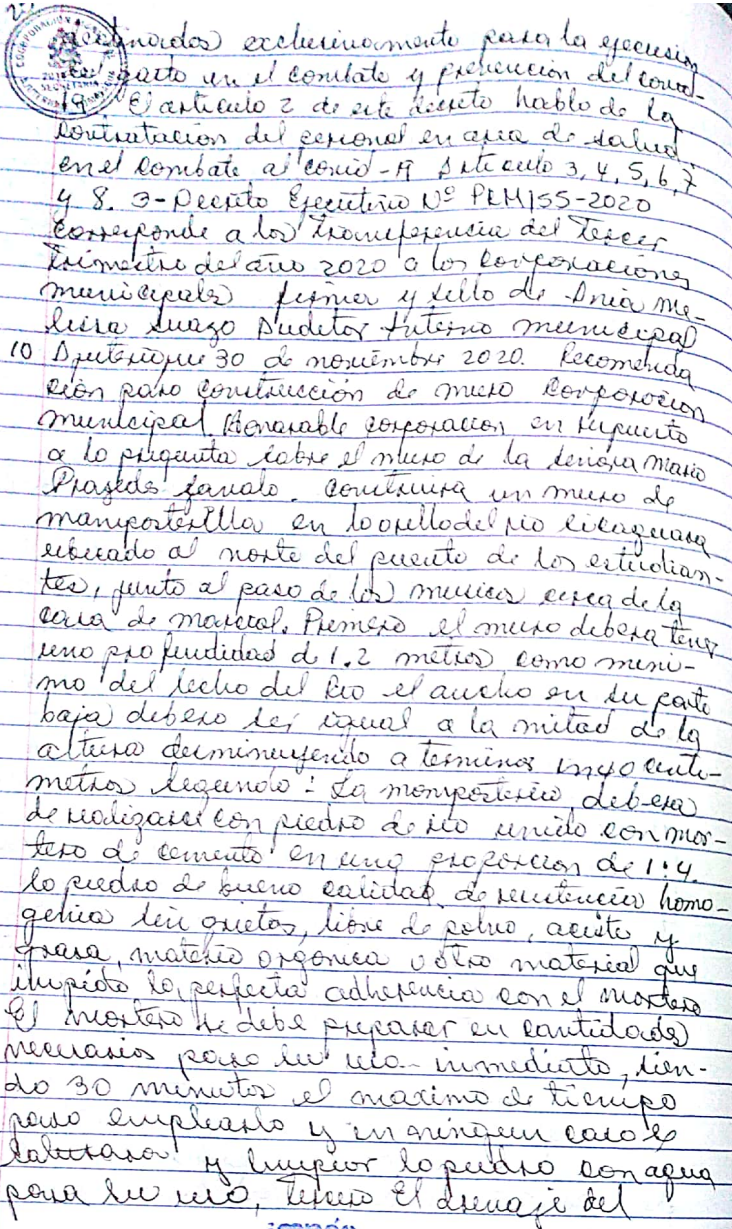 destinados exclusivamente para la ejecusion
gasto en el combate y prevencion del covid-
19. El articulo 2 de este decreto habla de la
contratacion del personal en area de salud
en el combate al covid-19 Articulo 3, 4, 5, 6, 7
y 8. 3-Decreto Ejecutivo Nº PCM155-2020
corresponde a los transferencia del tercer
trimestre del año 2020 a los corporaciones
municipales firma y sello de Ania Me-
lissa Suazo Auditor Interno municipal
10 30 de noviembre 2020. Recomenda
cion para construcción de muro Corporacion
municipal Honorable corporacion en repuesta
a la pregunta sobre el muro de la señora Maria
Construira un muro de
mamposteria en la orilla del rio
ubicado al norte del puente de los estudian-
tes, junto al paso de los cerca de la
casa de marcial. Primero el muro debera tener
uno profundidad de 1.2 metros como mini-
mo del lecho del rio el ancho en su parte
baja debera ser igual a la mitad de la
altura desminuyendo a terminar en 40 centi-
metros segundo: La mamposteria debera
de realizarse con piedra de rio unida con mor-
tero de cemento en una proporcion de 1:4.
la piedra de buena calidad, de resistencia homo-
genia sin grietas, libre de polvo, aceite y
grasa, materia organica u otro material que
impida la perfecta adherencia con el mortero
El mortero se debe preparar en cantidades
necesarias para su uso inmediato, sien-
do 30 minutos el maximo de tiempo
para emplearlo y en ningun caso se
y limpiar la piedra con agua
para su uso, Tercero El drenaje del